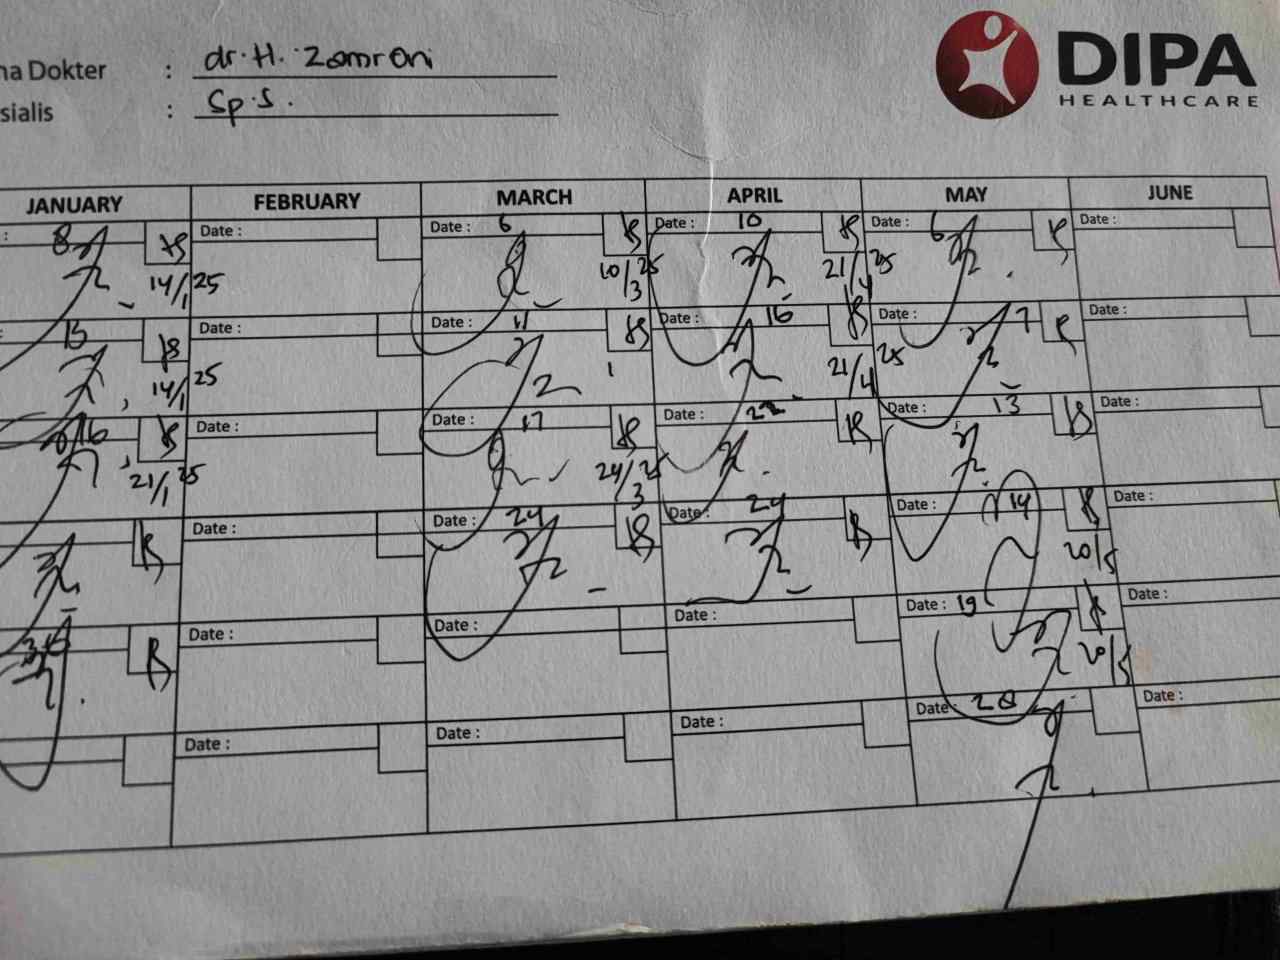 na Dokter : dr. H. Zamroni
sialis : Sp.S.
DIPA
HEALTHCARE
JANUARY FEBRUARY MARCH APRIL MAY JUNE
: 8 Date : Date : 6 Date : 10 Date : 6 Date :
14/1 25 10/3 25 21/4 25
: 15 Date : Date : 11 Date : 16 Date : 7 Date :
14/1 25 21/4 25
16 Date : Date : 17 Date : 22 Date : 13 Date :
21/1 25 24/3 25
Date : Date : 24 Date : 24 Date : 14 Date :
20/5
30 Date : Date : Date : Date : 19 Date :
20/5
Date : Date : Date : Date : 20 Date :